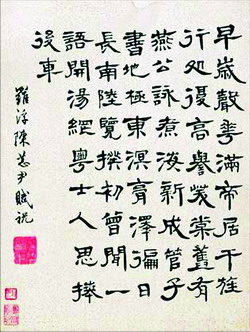 早歲聲華滿帝居干旄
行處復高譽棠舊有
燕公詠煮海新成管子
書地極東溟膏澤徧日
長南陸覽揆初曾聞一
語開湯網粵士人思捧
後車
羅浮陳恭尹賦祝